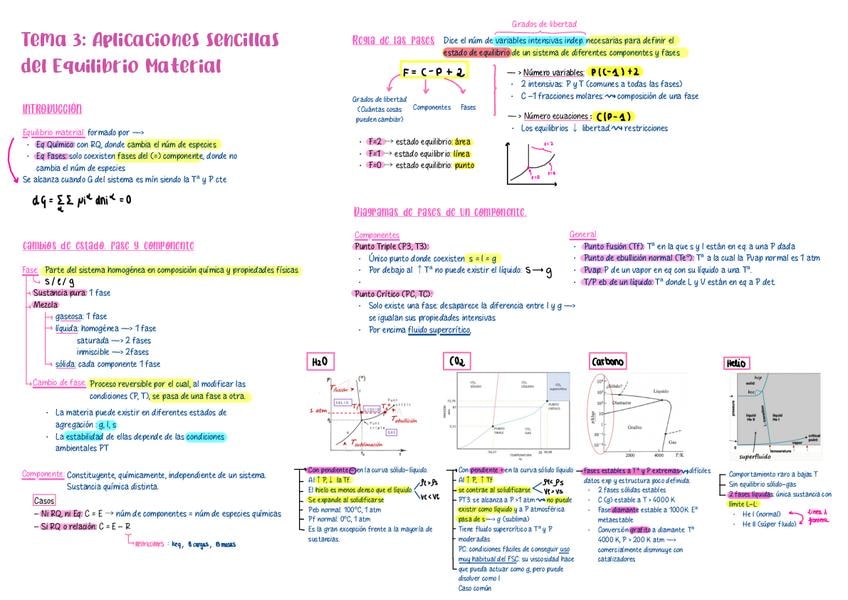 Tema 3: Aplicaciones sencillas
del Equilibrio Material
INTRODUCCIÓN
Equilibrio material formado por —>
· Eq Químico: con RQ, donde cambia el núm de especies
· Eq Fases: solo coexisten fases del (=) componente, donde no
cambia el núm de especies
Se alcanza cuando G del sistema es mín siendo la Tª y P cte
dG = Σ Σ μiᵅ dniᵅ = 0
α i
Cambios de estado, fase y componente
Fase: Parte del sistema homogénea en composición química y propiedades físicas
s / l / g
Sustancia pura: 1 fase
Mezcla:
gaseosa: 1 fase
líquida: homogénea —> 1 fase
saturada —> 2 fases
inmiscible —> 2fases
sólida: cada componente 1 fase
Cambio de fase: Proceso reversible por el cual, al modificar las
condiciones (P, T), se pasa de una fase a otra.
· La materia puede existir en diferentes estados de
agregación : g, l, s
· La estabilidad de ellas depende de las condiciones
ambientales PT
Componente: Constituyente, químicamente, independiente de un sistema.
Sustancia química distinta.
Casos
– Ni RQ, ni Eq: C = E → núm de componentes = núm de especies químicas
– Si RQ o relación: C = E – R
restricciones : keq, B cargas, B masas
Grados de libertad
Regla de las fases Dice el núm de variables intensivas indep necesarias para definir el
estado de equilibrio de un sistema de diferentes componentes y fases
F = C – P + 2
Grados de libertad
(Cuántas cosas
pueden cambiar)
Componentes
Fases
—> Número variables: P(C-1)+2
· 2 intensivas: P y T (comunes a todas las fases)
· C -1 fracciones molares ⇝ composición de una fase
—> Número ecuaciones : C(P-1)
· Los equilibrios ↓ libertad ⇝ restricciones
· F=2 → estado equilibrio: área
· F=1 → estado equilibrio: línea
· F=0 → estado equilibrio: punto
F=2
F=0
Diagramas de fases de un componente.
Componentes
Punto Triple (P3, T3):
· Único punto donde coexisten s = l = g
· Por debajo al ↑ Tª no puede existir el líquido: s → g
·
Punto Crítico (PC, TC):
· Solo existe una fase: desaparece la diferencia entre l y g —>
se igualan sus propiedades intensivas
· Por encima fluido supercrítico,
General
· Punto Fusión (Tf): Tª en la que s y l están en eq a una P dada
· Punto de ebullición normal (Teº): Tª a la cual la Pvap normal es 1 atm
· Pvap: P de un vapor en eq con su líquido a una Tª.
· T/P eb de un líquido: Tª donde L y V están en eq a P det.
H₂O
T fusión
1 atm
T ebullición
T sublimación
– Con pendiente – en la curva sólido-líquido
– Al ↑ P, ↓ la Tf
– El hielo es menos denso que el líquido
– Se expande al solidificarse
– Peb normal: 100ºC, 1 atm
– Pf normal: 0ºC, 1 atm
– Es la gran excepción frente a la mayoría de
sustancias.
CO₂
– Con pendiente + en la curva sólido líquido
– Al ↑ P, ↑ Tf
– se contrae al solidificarse
– PT3 se alcanza a P >1 atm ⇝ no puede
existir como líquido y a P atmosférica
pasa de s → g (sublima)
– Tiene fluido supercrítico a Tª y P
moderadas
PC: condiciones fáciles de conseguir uso
muy habitual del FSC: su viscosidad hace
que pueda actuar como g, pero puede
disolver como l
Caso común
Carbono
¿Sólido?
Diamante
Líquido
Grafito
Gas
2000 4000 T/K
– Fases estables a Tª y P extremas ⇝ difíciles
datos exp y estructura poco definida.
· 2 fases sólidas estables
· C (g) estable a T > 4000 K
· Fase diamante estable a 1000K Eº
metaestable
· Conversión grafito a diamante Tª
4000 K, P > 200 K atm —>
comercialmente disminuye con
catalizadores
Helio
hcp
solid
bcc
pressure
liquid
He II
liquid
He I
critical
point
superfluid
– Comportamiento raro a bajas T
– Sin equilibrio sólido-gas
– 2 fases líquidas: única sustancia con
límite L-L
· He I (normal)
· He II (Súper fluido)
línea λ